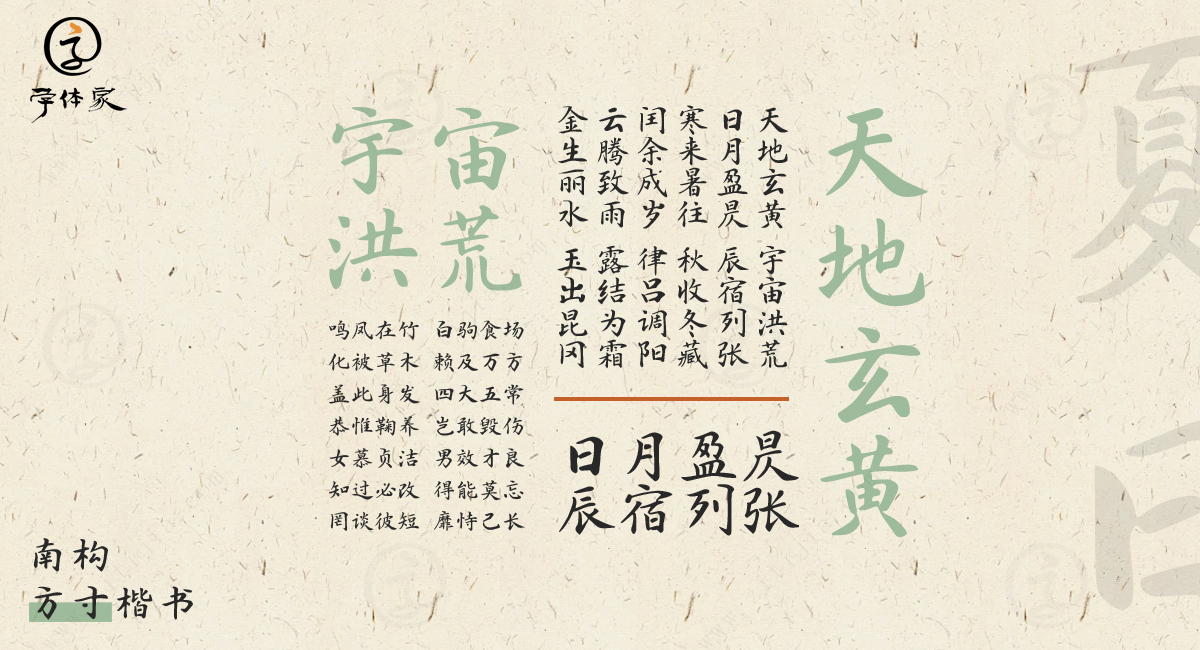 字体家
天地玄黄
宇宙
洪荒
天地玄黄 宇宙洪荒
日月盈昃 辰宿列张
寒来暑往 秋收冬藏
闰余成岁 律吕调阳
云腾致雨 露结为霜
金生丽水 玉出昆冈
鸣凤在竹 白驹食场
化被草木 赖及万方
盖此身发 四大五常
恭惟鞠养 岂敢毁伤
女慕贞洁 男效才良
知过必改 得能莫忘
罔谈彼短 靡恃己长
日月盈昃
辰宿列张
南构
方寸楷书
夏